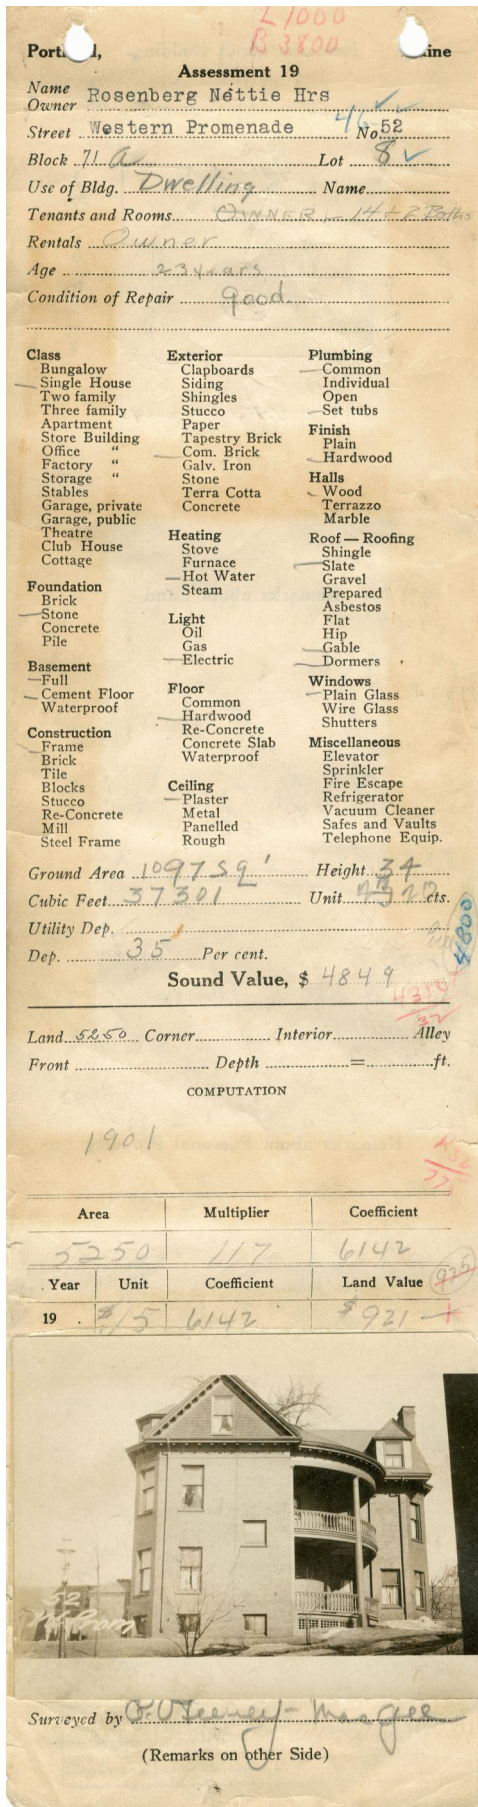 L 1000
B 3800
Portland, Maine
Assessment 19
Name
Owner Rosenberg Nettie Hrs
Street Western Promenade 46- No. 52
Block 71 a Lot 8
Use of Bldg. Dwelling Name
Tenants and Rooms OWNER - 14 + 2 Baths
Rentals Owner
Age 23 years
Condition of Repair good.
Class
Bungalow
Single House
Two family
Three family
Apartment
Store Building
Office "
Factory "
Storage "
Stables
Garage, private
Garage, public
Theatre
Club House
Cottage
Foundation
Brick
Stone
Concrete
Pile
Basement
Full
Cement Floor
Waterproof
Construction
Frame
Brick
Tile
Blocks
Stucco
Re-Concrete
Mill
Steel Frame
Exterior
Clapboards
Siding
Shingles
Stucco
Paper
Tapestry Brick
Com. Brick
Galv. Iron
Stone
Terra Cotta
Concrete
Heating
Stove
Furnace
Hot Water
Steam
Light
Oil
Gas
Electric
Floor
Common
Hardwood
Re-Concrete
Concrete Slab
Waterproof
Ceiling
Plaster
Metal
Panelled
Rough
Plumbing
Common
Individual
Open
Set tubs
Finish
Plain
Hardwood
Halls
Wood
Terrazzo
Marble
Roof — Roofing
Shingle
Slate
Gravel
Prepared
Asbestos
Flat
Hip
Gable
Dormers
Windows
Plain Glass
Wire Glass
Shutters
Miscellaneous
Elevator
Sprinkler
Fire Escape
Refrigerator
Vacuum Cleaner
Safes and Vaults
Telephone Equip.
Ground Area 1097 sq' Height 34
Cubic Feet 37301 Unit 20 cts.
4800
Utility Dep.
Dep. 35 Per cent.
Sound Value, $ 4849
Land 5250 Corner Interior Alley
Front Depth = ft.
COMPUTATION
1901
Area Multiplier Coefficient
5250 117 6142
Year Unit Coefficient Land Value 925
19 $.15 6142 $921
52
Surveyed by
(Remarks on other Side)